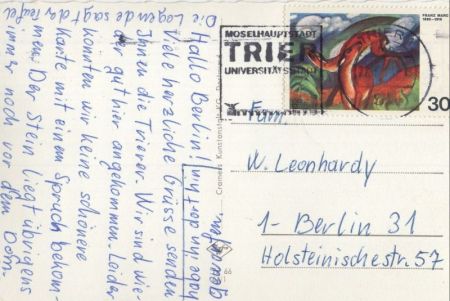 Hallo Berlin!
Viele herzliche Grüsse senden
Ihnen die Trierer. Wir sind wie-
der gut hier angekommen. Leider
konnten wir keine schönere
Karte mit einem Spruch bekom-
men. Der Stein liegt übrigens
immer noch vor dem Dom.
Die Legende sagt da
Cramers Kunstanstalt KG, Dortmund
66
MOSELHAUPTSTADT
TRIER
UNIVERSITÄTSSTADT
FRANZ MARC
1880-1916
30
Fam.
W. Leonhardy
1-Berlin 31
Holsteinischestr. 57